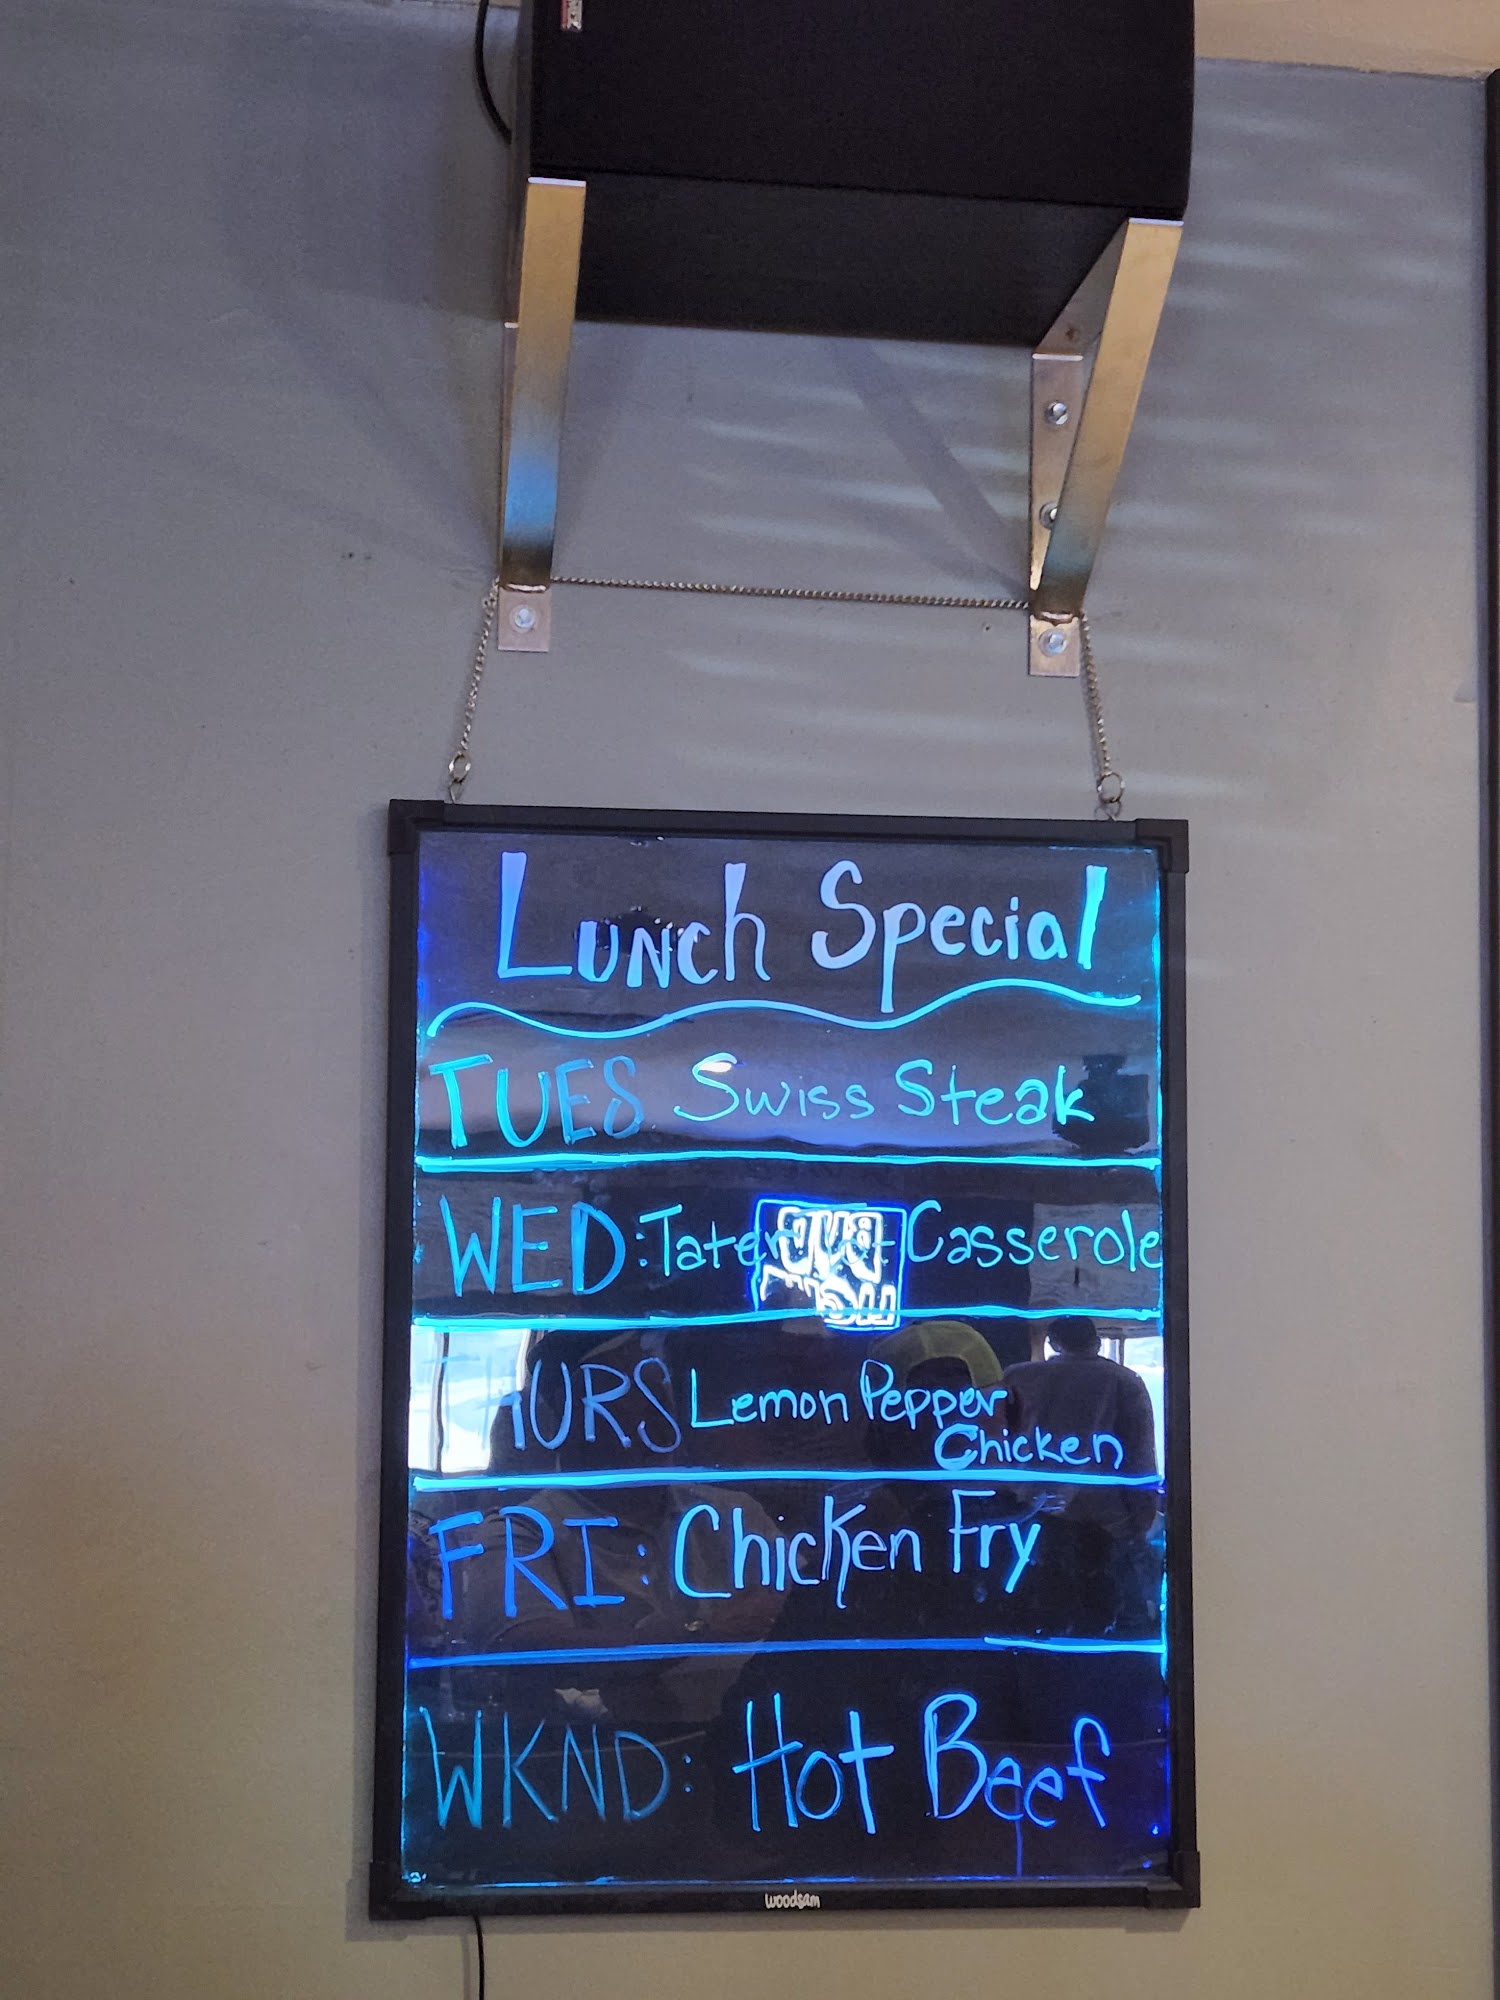 Lunch Special
TUES Swiss Steak
WED: Tater Tot Casserole
THURS Lemon Pepper
Chicken
FRI: Chicken Fry
WKND: Hot Beef
woodsam